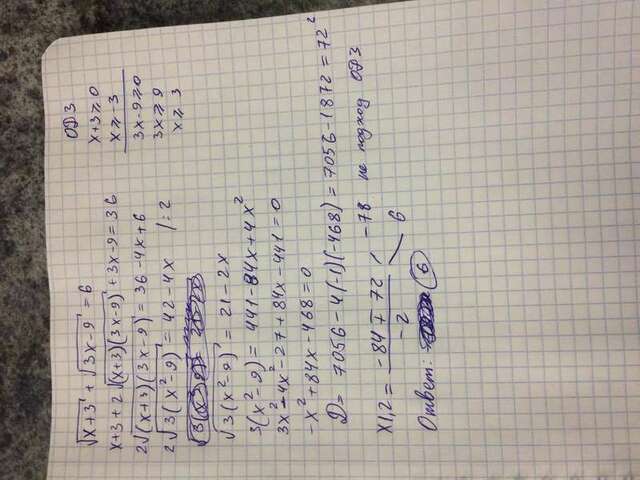 √(x+3) + √(3x-9) = 6
x+3+2√((x+3)(3x-9))+3x-9=36
2√((x+3)(3x-9)) = 36-4x+6
2√(3(x²-9)) = 42-4x |:2
√(3(x²-9)) = 21-2x
3(x²-9) = 441-84x+4x²
3x²-4x²-27+84x-441=0
-x²+84x-468=0
D= 7056-4(-1)(-468)=7056-1872=72²
x1,2 = (-84∓72)/(-2) -78 не подход ОДЗ
6
Ответ: 6
ОДЗ
x+3⩾0
x⩾-3
3x-9⩾0
3x⩾9
x⩾3